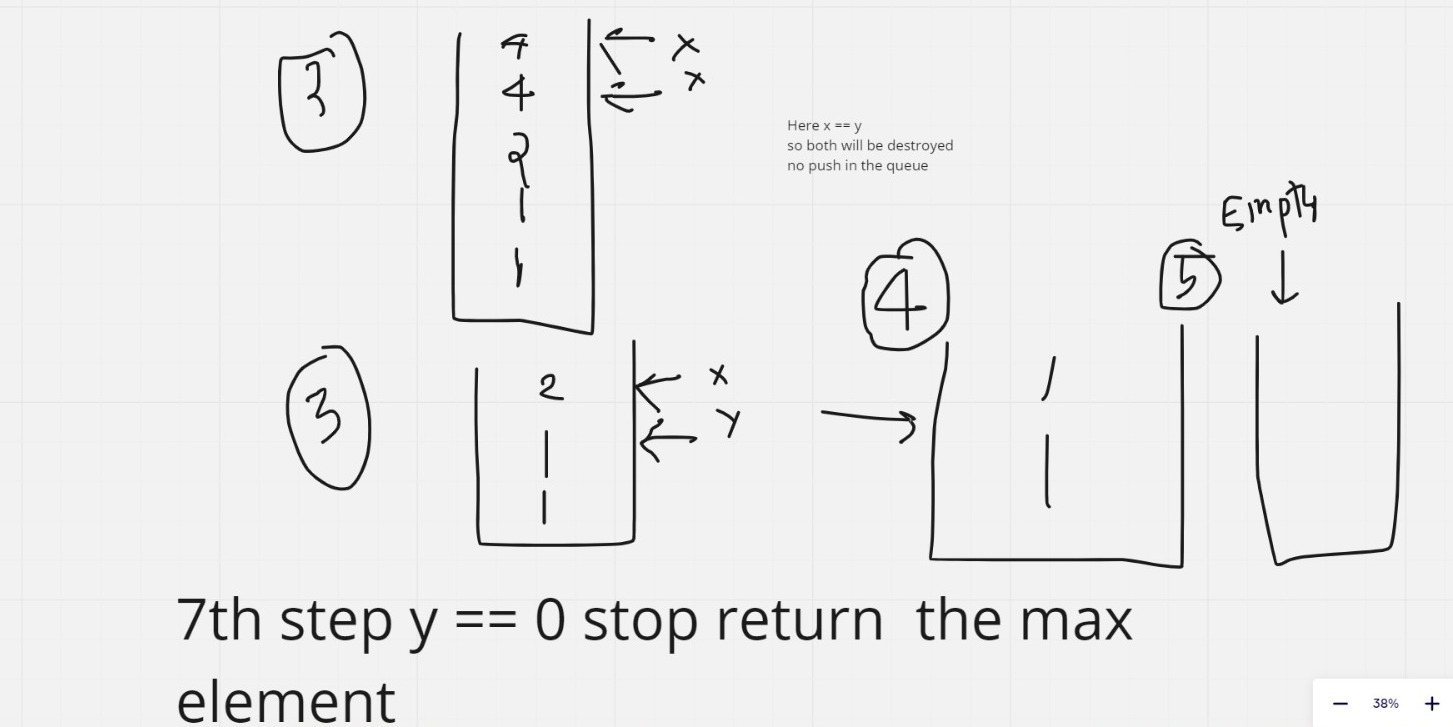 3
4
4
2
1
1
x
x
Here x == y
so both will be destroyed
no push in the queue
3
2
1
1
x
y
4
1
1
5
Empty
7th step y == 0 stop return  the max
element
38%